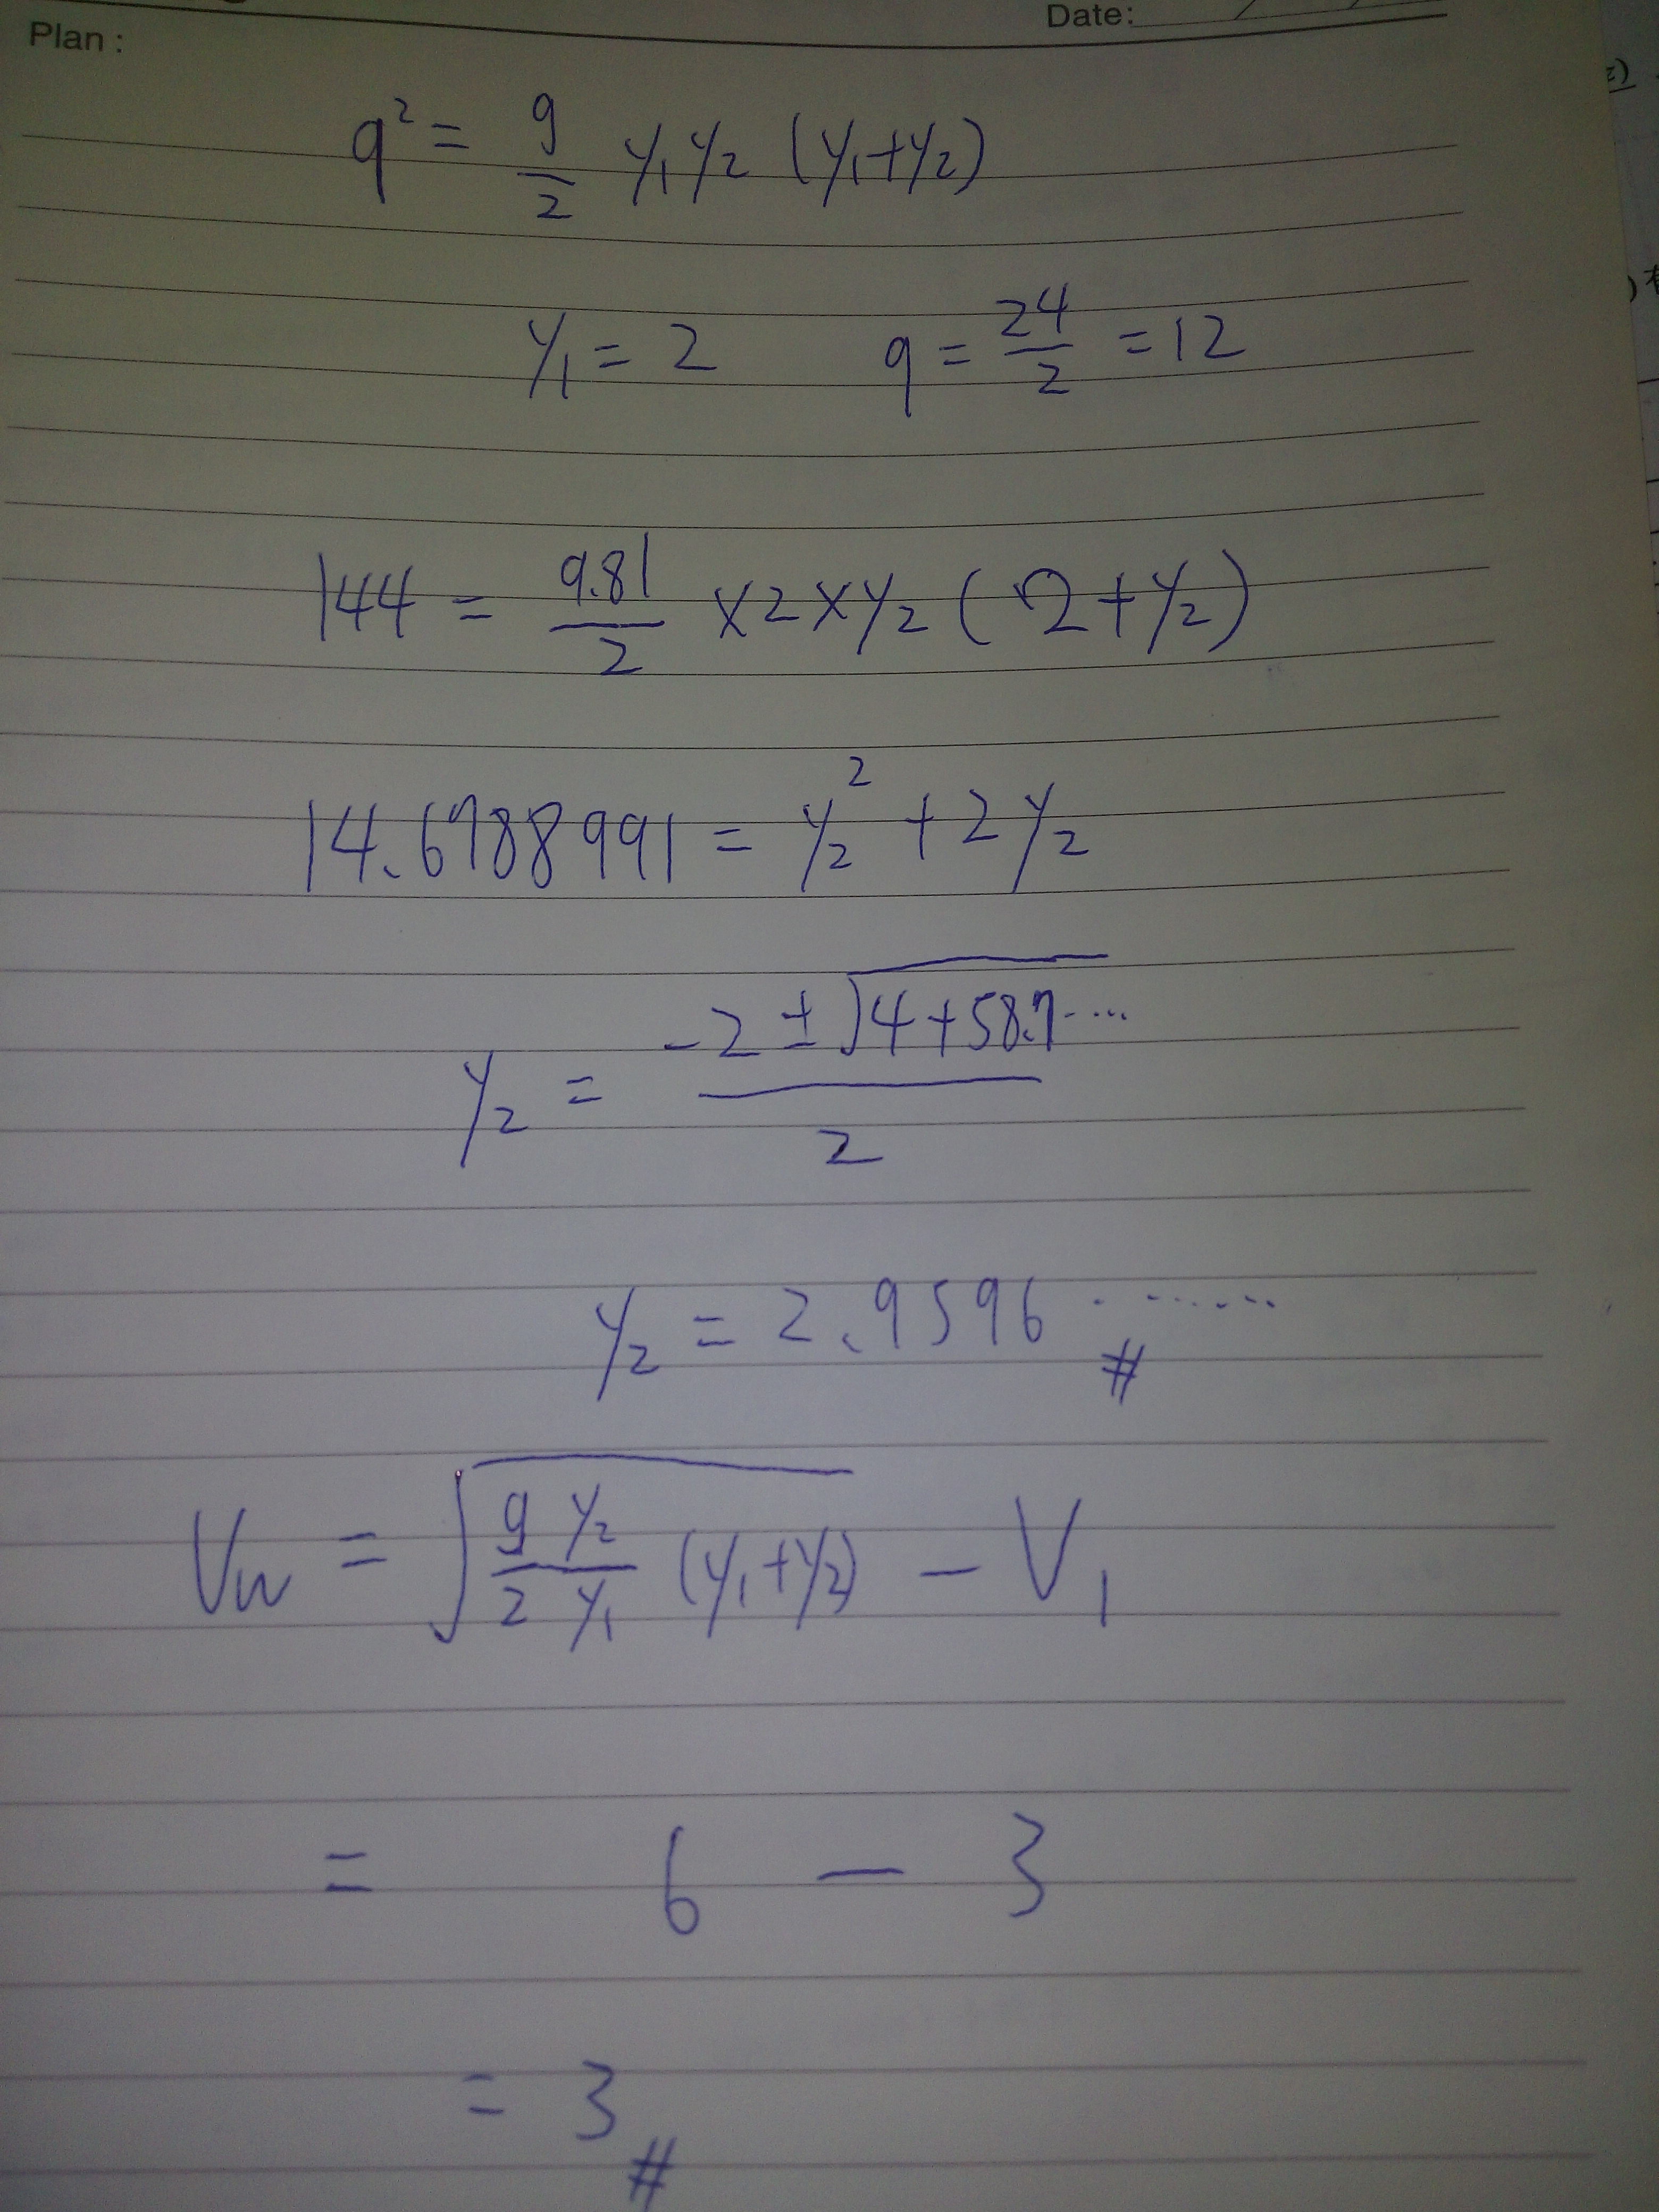 Plan :
Date:
q² = g/2 y₁y₂ (y₁+y₂)
y₁ = 2 q = 24/2 = 12
144 = 9.81/2 ×2×y₂ (2+y₂)
14.6788991 = y₂² + 2y₂
y₂ = (-2 ± √(4+58.7····))/2
y₂ = 2.9596 ······· #
Vw = √(g/2 y₂/y₁ (y₁+y₂)) - V₁
= 6 - 3
= 3 #